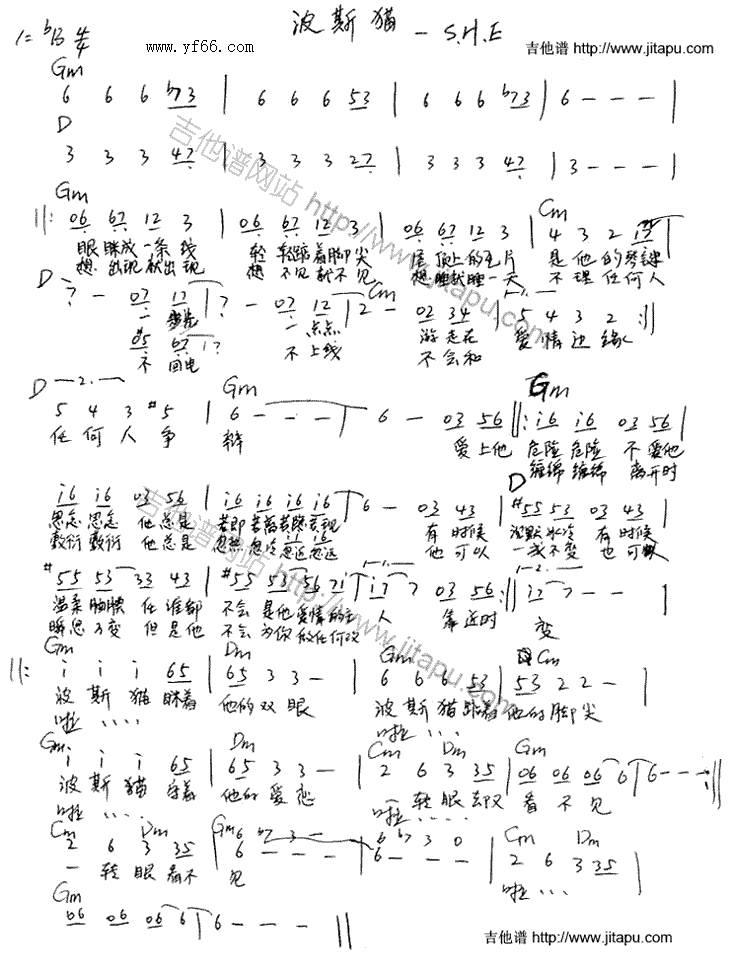 波斯猫 — S.H.E
1=ᵇB 4/4
www.yf66.com
吉他谱 http://www.jitapu.com
Gm
6 6 6 b73 | 6 6 6 53 | 6 6 6 b73 | 6 - - - |
D
3 3 3 47 | 3 3 3 27 | 3 3 3 47 | 3 - - - |
Gm Cm
||: 06 67 12 3 | 06 67 12 3 | 06 67 12 3 | 4 3 2
眼眯成一条线 轻轻踮着脚尖 屋顶上的瓦片 是他的琴键
想出现就出现 想不见就不见 想睡就睡一天 不理任何人
D Cm
一步步 一点点 游走在 爱情边缘
不回电 不上线 不会和
5 4 3 2 :||
D 2. Gm Gm
5 4 3 #5 | 6 - - - | 6 - 03 56 ||: i6 i6 03 56 |
任何人争 辩 爱上他 危险危险 不爱他
缠绵缠绵 离开时
D
i6 i6 03 56 | i6 i6 i6 i6 | 6 - 03 43 | #55 53 03 43 |
思念思念 他总是 若即若离若隐若现 有时候 沉默冰冷 有时候
敷衍敷衍 他总是 忽热忽冷忽近忽远 他可以 一成不变 也可以
温柔 任谁都 不会是他爱情的主人 靠近时 变
瞬息万变 但是他 不会为你做任何改
Gm Dm Gm Cm
||: i i i 65 | 65 3 3 - | 6 6 6 53 | 53 2 2 - |
波斯猫眯着 他的双眼 波斯猫踮着 他的脚尖
啦 .... 啦 ....
Gm Dm Cm Dm Gm
i i i 65 | 65 3 3 - | 2 6 3 35 | 06 06 06 6 | 6 - - - :||
波斯猫守着 他的爱恋 一转眼却又 看不见
啦 .... 啦 ....
Cm Dm Gm Cm Dm
2 6 3 35 | 6 - - - | 6 - - - | 2 6 3 35 |
一转眼看不 见 啦 ...
Gm
06 06 06 6 | 6 - - - ||
吉他谱网站 http://www.jitapu.com
吉他谱网站 http://www.jitapu.com
吉他谱 http://www.jitapu.com